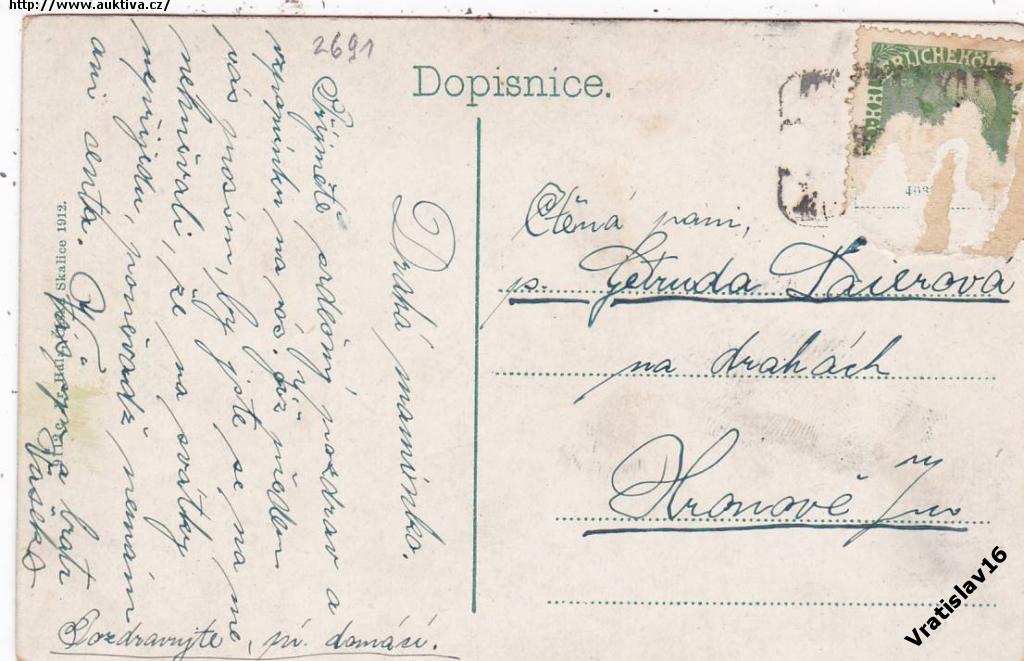 http://www.auktiva.cz/
2691
Dopisnice.
Drahá maminko.
Přijměte srdečný pozdrav a
vzpomínku na vás. Již předem
vás prosím, by jste se na mne
nehněvali, že na svátky
nepřijedu, poněvadž nemám
ani centa.
a bratr
Vašek
Pozdravujte, pí. domácí.
Skalice 1912.
Ctěná paní,
p. Getruda
na drahách
Hronově
Vratislav16